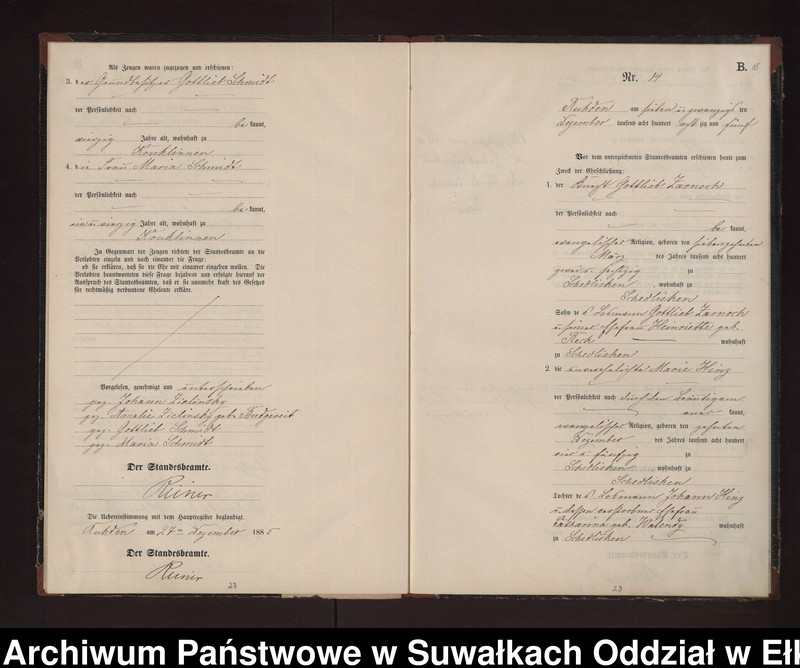 Als Zeugen waren zugezogen und erschienen:
3. der Grundbesitzer Gottlieb Schmidt
der Persönlichkeit nach
be kannt,
vierzig Jahre alt, wohnhaft zu
Kruklinnen
4. die Frau Maria Schmidt
der Persönlichkeit nach
be kannt,
ein u vierzig Jahre alt, wohnhaft zu
Kruklinnen
In Gegenwart der Zeugen richtete der Standesbeamte an die
Verlobten einzeln und nach einander die Frage:
ob sie erklären, daß sie die Ehe mit einander eingehen wollen. Die
Verlobten beantworteten diese Frage bejahend und erfolgte hierauf der
Ausspruch des Standesbeamten, daß er sie nunmehr kraft des Gesetzes
für rechtmäßig verbundene Eheleute erkläre.
Vorgelesen, genehmigt und unterschrieben
gez. Johann Zielinsky
gez. Amalie Zielinsky geb.
gez. Gottlieb Schmidt
gez. Maria Schmidt
Der Standesbeamte.
Reiner
Die Uebereinstimmung mit dem Hauptregister beglaubigt.
Ruhden am 27ten Dezember 1885
Der Standesbeamte.
Reiner
27
B.
Nr. 14
Ruhden am sieben u zwanzigsten
Dezember tausend acht hundert acht zig und fünf
Vor dem unterzeichneten Standesbeamten erschienen heute zum
Zweck der Eheschließung:
1. der Knecht Gottlieb Zarnoch
der Persönlichkeit nach
be kannt,
evangelischer Religion, geboren den siebenzehnten
März des Jahres tausend acht hundert
zwei u sechzig zu
Schedlisken, wohnhaft zu
Schedlisken
Sohn des Losmann Gottlieb Zarnoch
u seiner Ehefrau Heinriette geb.
wohnhaft
zu Schedlisken
2. die unverehelichte Marie Hinz
der Persönlichkeit nach durch den Bräutigam
aner kannt,
evangelischer Religion, geboren den zehnten
Dezember des Jahres tausend acht hundert
vier u fünfzig zu
Schedlisken, wohnhaft zu
Schedlisken
Tochter des Losmann Johann Hinz
u dessen verstorbener Ehefrau
Catharina geb. wohnhaft
zu Schedlisken
Archiwum Państwowe w Suwałkach Oddział w Eł